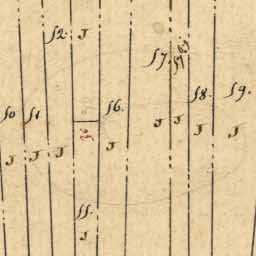 52.
J
57.
58.
59.
50
51
56.
J
J
J
J
J
J
J
J
55.
J